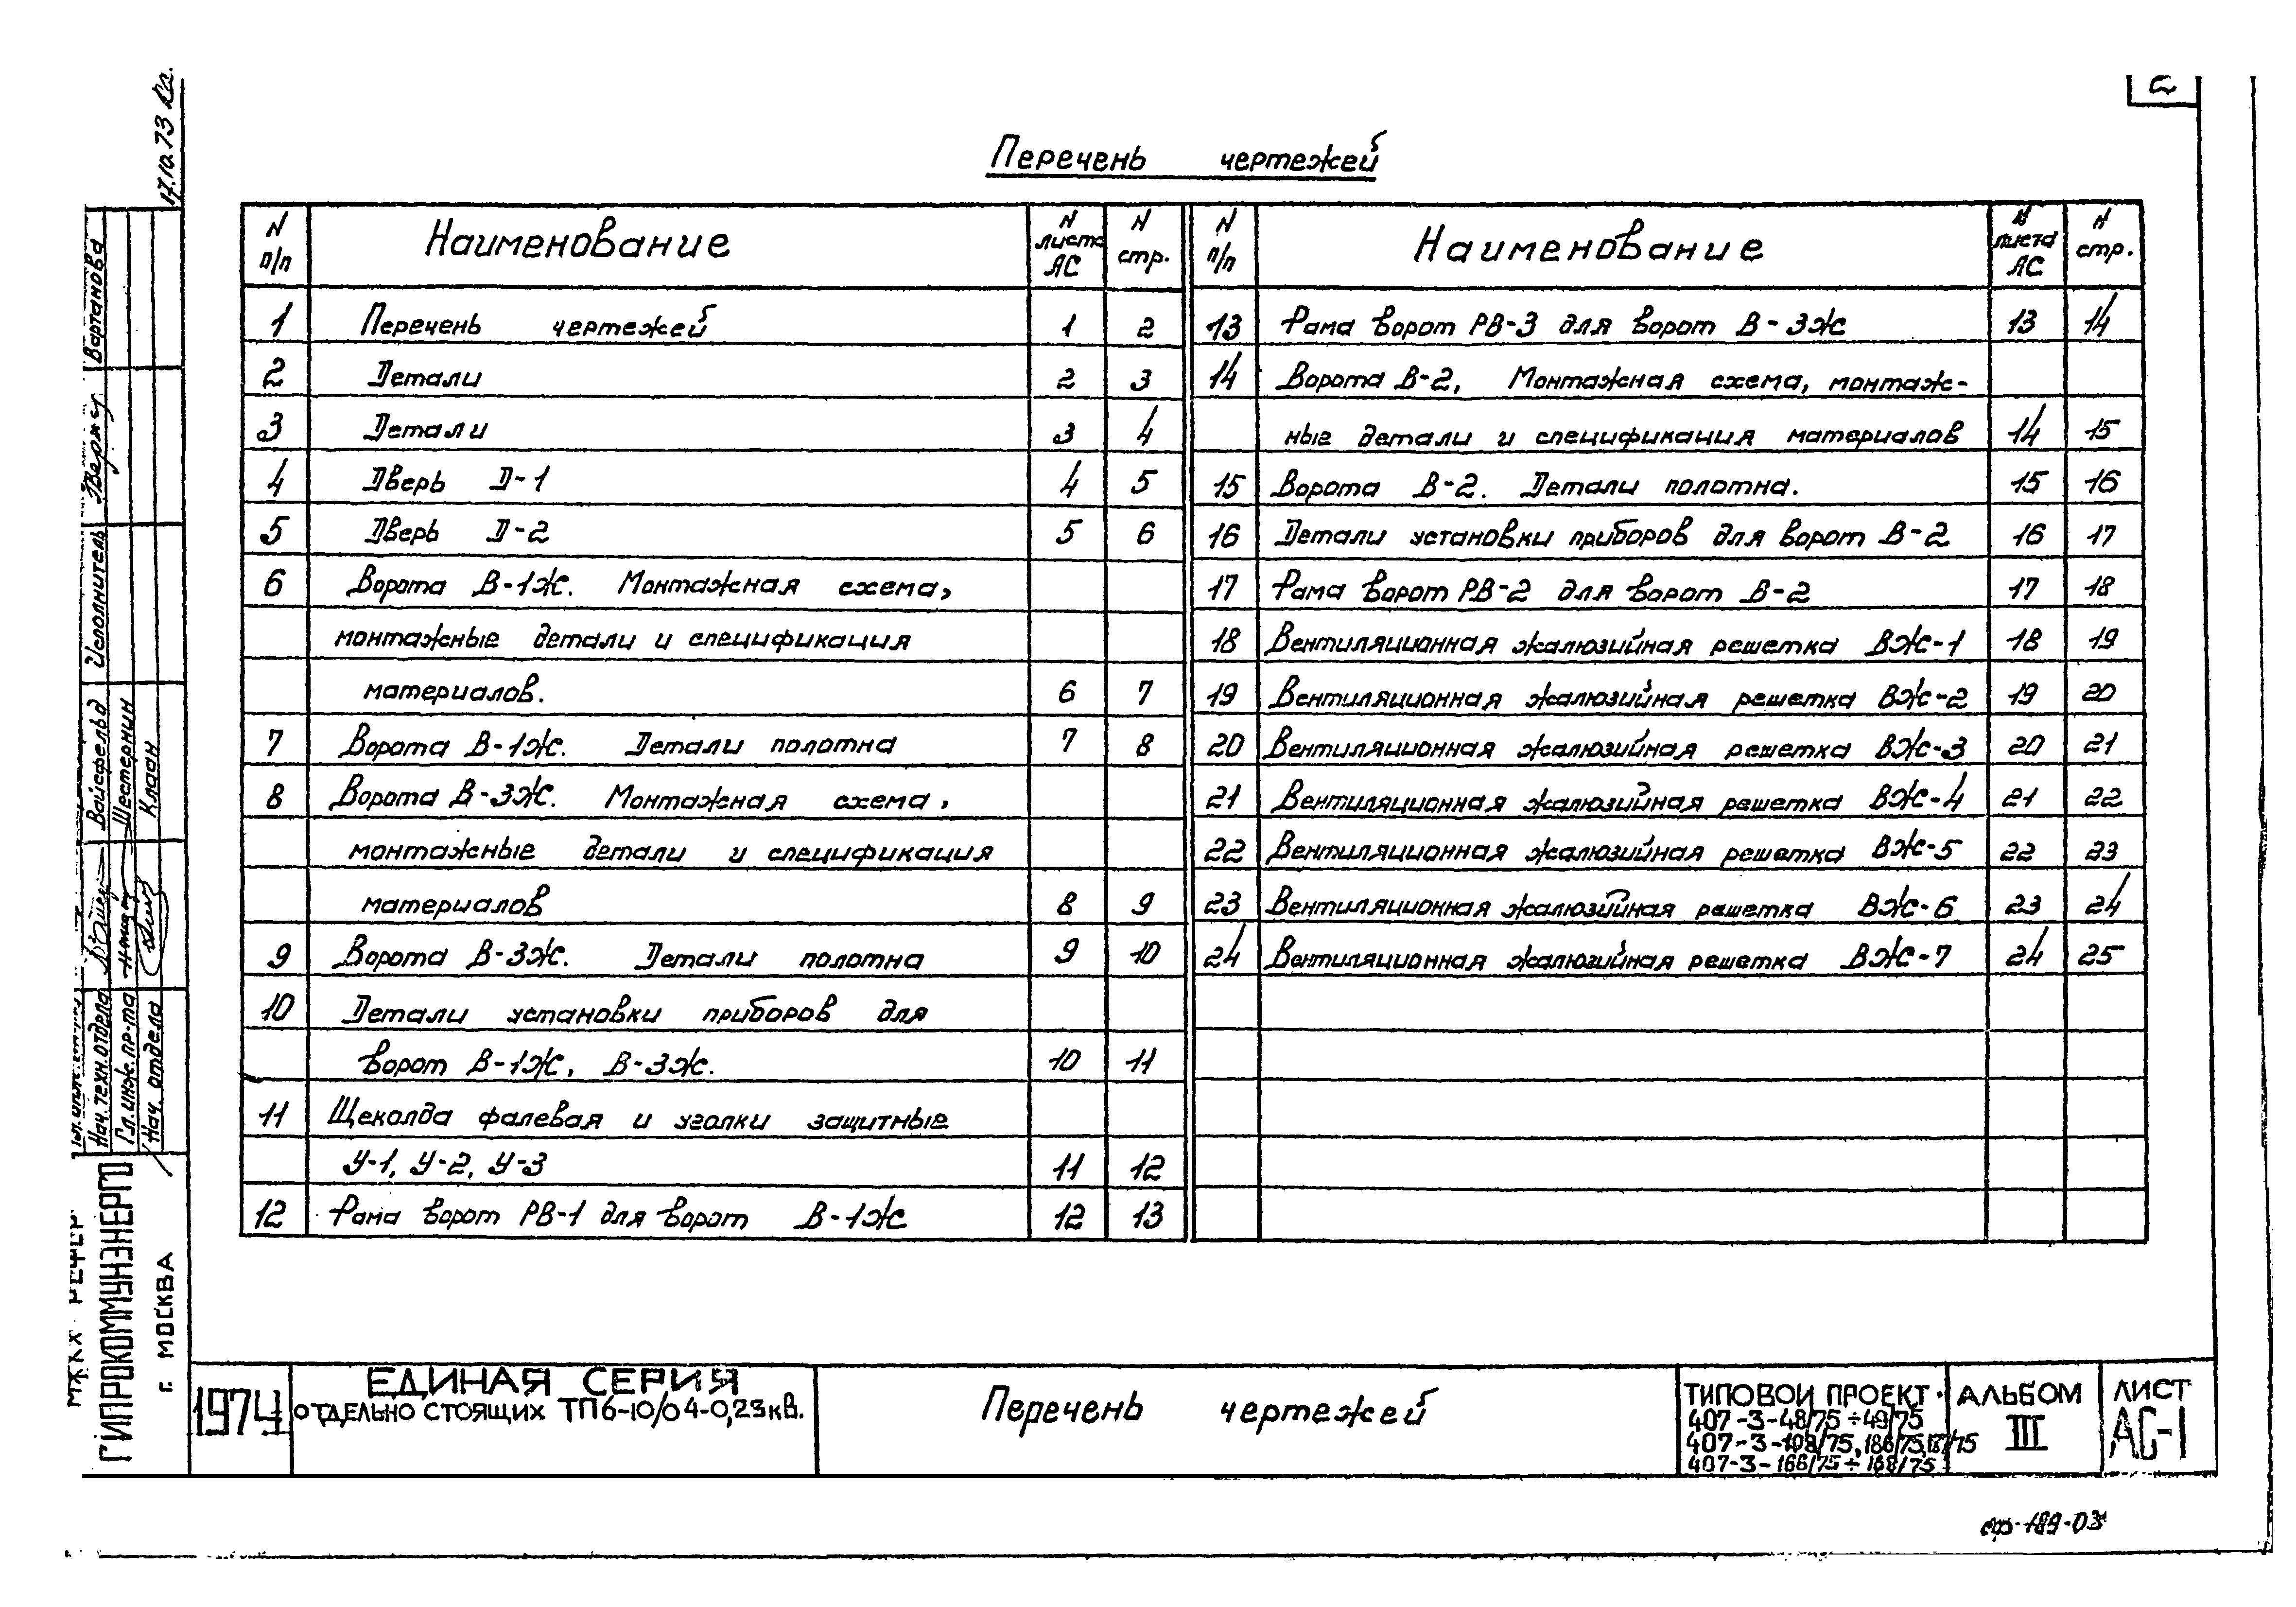 2
Перечень чертежей
N п/п Наименование N листа АС N стр.
1 Перечень чертежей 1 2
2 Детали 2 3
3 Детали 3 4
4 Дверь Д-1 4 5
5 Дверь Д-2 5 6
6 Ворота В-1Ж. Монтажная схема,
монтажные детали и спецификация
материалов. 6 7
7 Ворота В-1Ж. Детали полотна 7 8
8 Ворота В-3Ж. Монтажная схема,
монтажные детали и спецификация
материалов 8 9
9 Ворота В-3Ж. Детали полотна 9 10
10 Детали установки приборов для
ворот В-1Ж, В-3Ж. 10 11
11 Щеколда фалевая и уголки защитные
У-1, У-2, У-3 11 12
12 Рама ворот РВ-1 для ворот В-1Ж 12 13
N п/п Наименование N листа АС N стр.
13 Рама ворот РВ-3 для ворот В-3Ж 13 14
14 Ворота В-2, Монтажная схема, монтаж-
ные детали и спецификация материалов 14 15
15 Ворота В-2. Детали полотна. 15 16
16 Детали установки приборов для ворот В-2 16 17
17 Рама ворот РВ-2 для ворот В-2 17 18
18 Вентиляционная жалюзийная решетка ВЖ-1 18 19
19 Вентиляционная жалюзийная решетка ВЖ-2 19 20
20 Вентиляционная жалюзийная решетка ВЖ-3 20 21
21 Вентиляционная жалюзийная решетка ВЖ-4 21 22
22 Вентиляционная жалюзийная решетка ВЖ-5 22 23
23 Вентиляционная жалюзийная решетка ВЖ-6 23 24
24 Вентиляционная жалюзийная решетка ВЖ-7 24 25
17.10.73
Нач. техн. отдела Вайсфельд Исполнитель Вартанова
Гл. инж. пр-та Шестернин
Нач. отдела Клаан
МЖКХ РСФСР
ГИПРОКОММУНЭНЕРГО
г. МОСКВА
1974
ЕДИНАЯ СЕРИЯ
ОТДЕЛЬНО СТОЯЩИХ ТП 6-10/0 4-0,23кВ.
Перечень чертежей
ТИПОВОЙ ПРОЕКТ
407-3-48/75÷49/75
407-3-108/75, 186/75, 187/75
407-3-166/75÷168/75
АЛЬБОМ
III
ЛИСТ
АС-1
сф-189-03